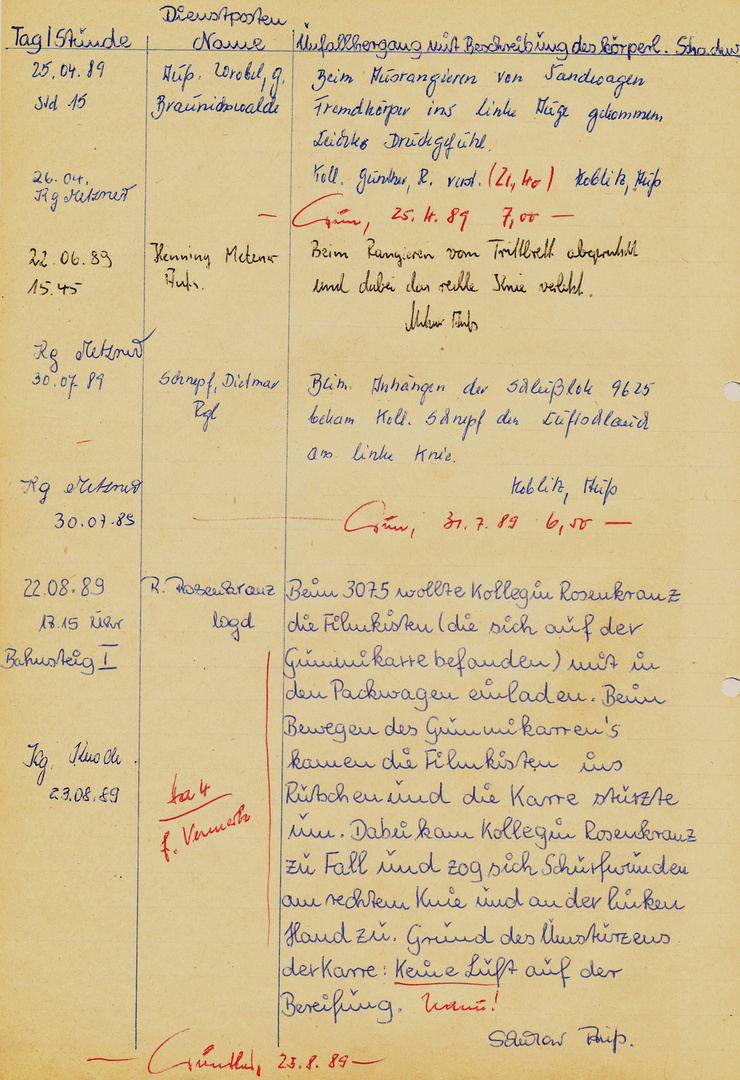 Dienstposten
Tag/Stunde Name Unfallhergang mit Beschreibung des körperl. Schadens
25.04.89 Aufs. Wrobel, G. Beim Ausrangieren von Sandwagen
Std 15 Braunichswalde Fremdkörper ins linke Auge gekommen,
Leichtes Druckgefühl.
26.04. Koll. Günther, R. verst. (21,40) Koblitz, Aufs
Kg Metzner
— Grün, 25.4.89 7,00 —
22.06.89 Henning Metzner Beim Rangieren vom Trittbrett abgerutscht
15.45 Aufs. und dabei das rechte Knie verletzt.
Metzner Aufs
Kg Metzner
30.07.89 Schnepf, Dietmar Beim Anhängen der Schlußlok 9625
Rgl bekam Koll. Schnepf den Luftschlauch
ans linke Knie.
Kg Metzner Koblitz, Aufs
30.07.89 — Grün, 31.7.89 6,00 —
22.08.89 R. Rosenkranz Beim 3075 wollte Kollegin Rosenkranz
17.15 Uhr logd die Filmkisten (die sich auf der
Bahnsteig I Gummikarre befanden) mit in
den Packwagen einladen. Beim
Bewegen des Gummikarren's
Kg. kamen die Filmkisten ins
23.08.89 Rutschen und die Karre stürzte
f. Vermerk um. Dabei kam Kollegin Rosenkranz
zu Fall und zog sich Schürfwunden
am rechtem Knie und an der linken
Hand zu. Grund des Umstürzens
der Karre: Keine Luft auf der
Bereifung. Warum!
Aufs.
— Günther, 23.8.89 —